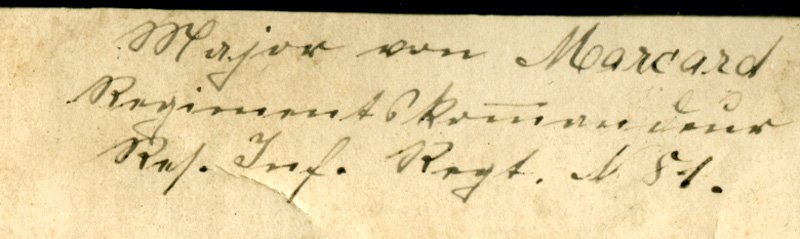 Major von Marcard
Regimentskom̅andeur
Res. Inf. Regt. N 81.